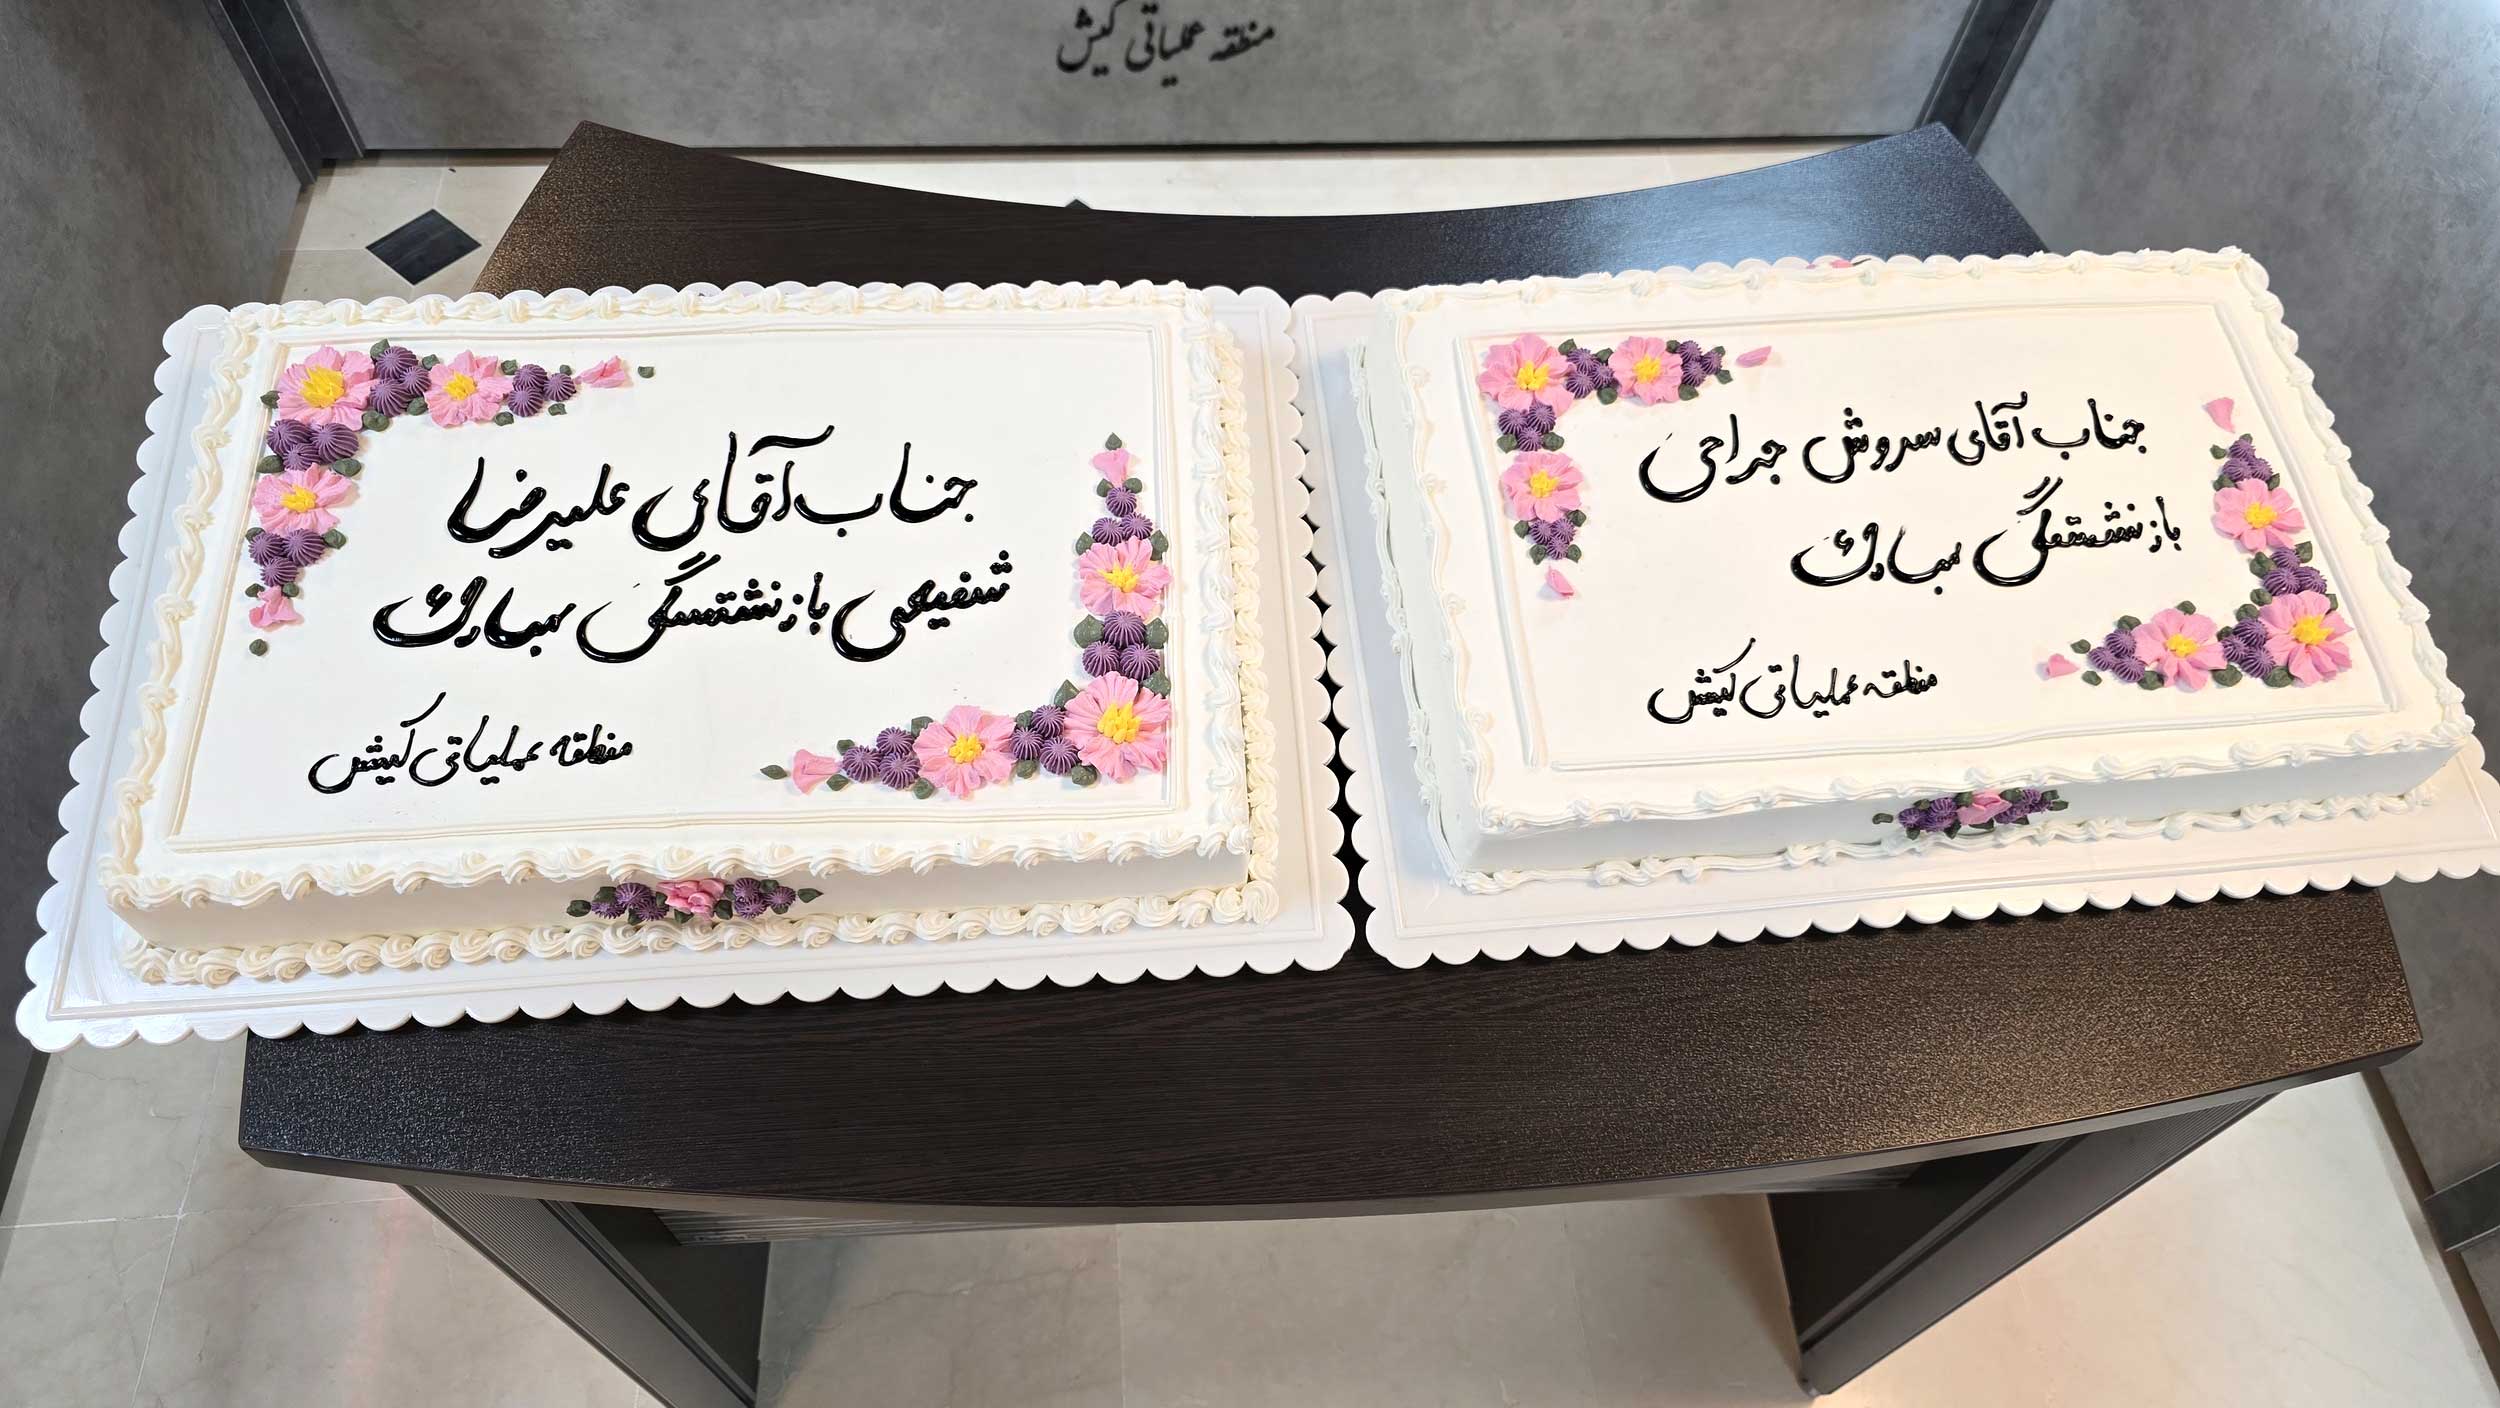 منطقه عملیاتی کیش
جناب آقای سروش جراحی
بازنشستگی مبارک
منطقه عملیاتی کیش
جناب آقای علیرضا
شفیعی بازنشستگی مبارک
منطقه عملیاتی کیش